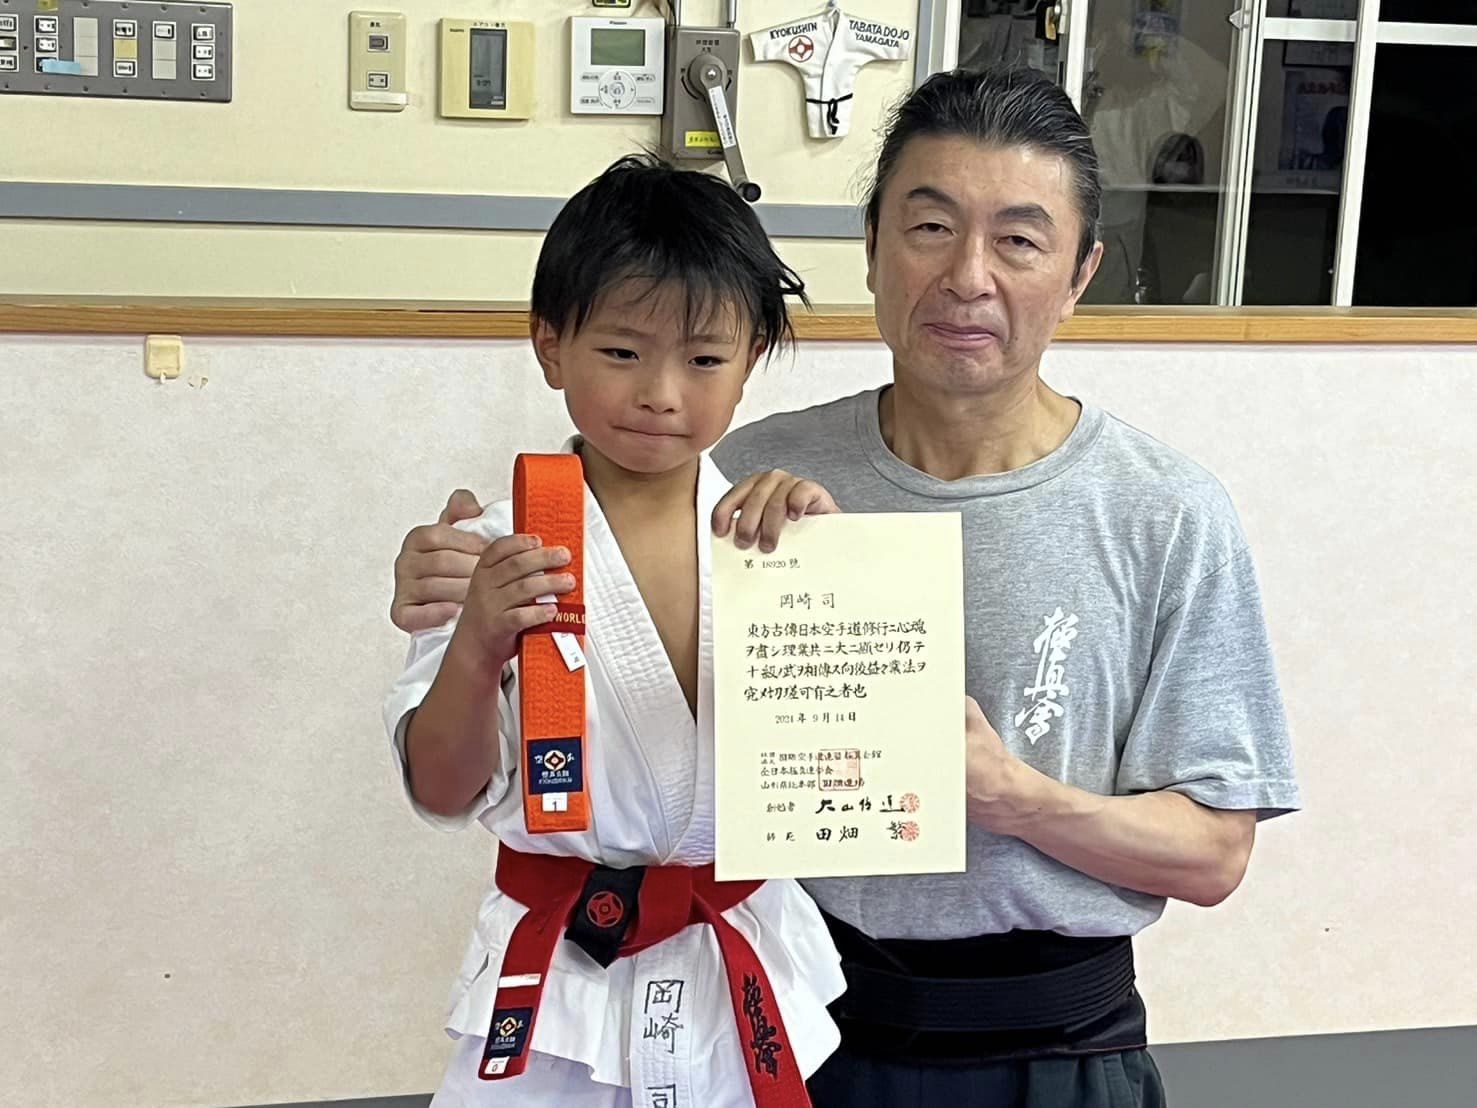 KYOKUSHIN
TABATA DOJO
YAMAGATA
第 18920 号
岡崎 司
東方古傳日本空手道修行ニ心魂
ヲ盡シ理業共ニ大ニ顕セリ仍テ
十級ノ武ヲ相傳ス向後益々業法ヲ
究メ切瑳可有之者也
2024 年 9 月 14 日
社団法人 国際空手道連盟極真会館
全日本極真連合会
山形県総本部 田畑道場
創始者 大山倍達
師範 田畑 繁
WORLD
1
極真会
岡崎 司
極真會
0